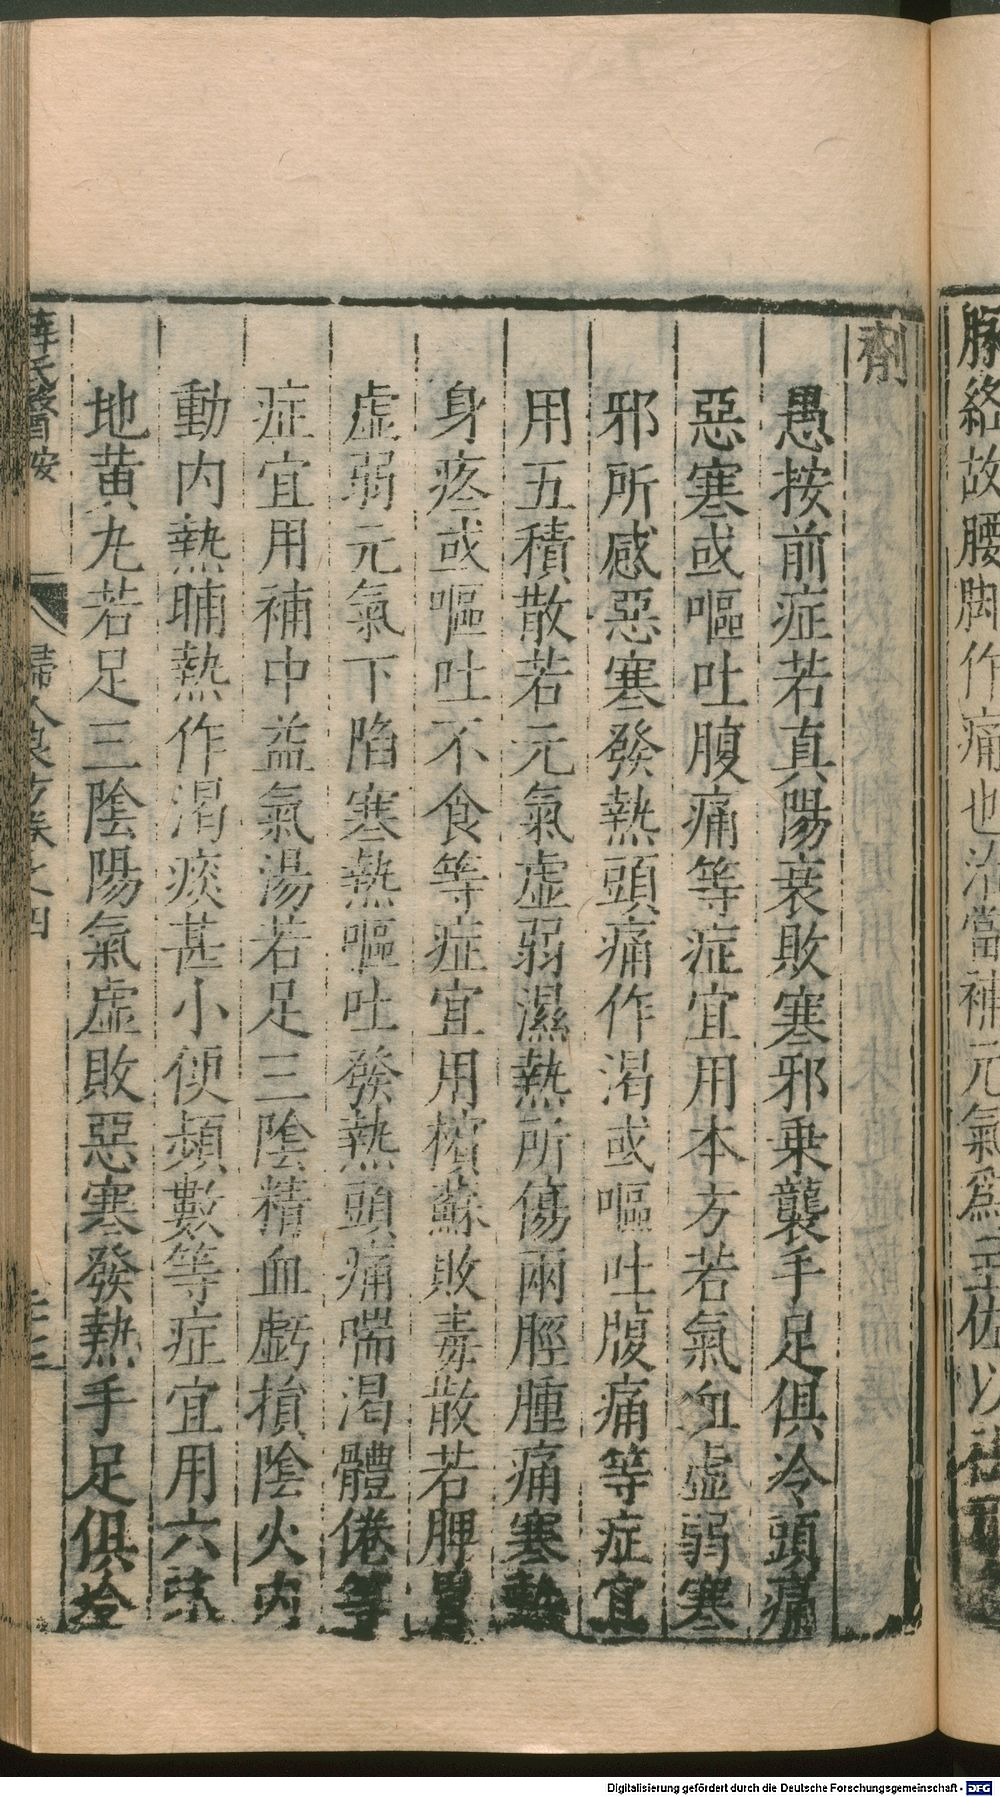 脈絡故腰脚作痛也治當補元氣爲主佐以
劑
愚按前症若真陽衰敗寒邪乗襲手足俱冷頭痛
惡寒或嘔吐腹痛等症宜用本方若氣血虛弱寒
邪所感惡寒發熱頭痛作渴或嘔吐腹痛等症宜
用五積散若元氣虛弱濕熱所傷兩脛腫痛寒熱
身疼或嘔吐不食等症宜用檳蘇敗毒散若脾胃
虛弱元氣下陷寒熱嘔吐發熱頭痛喘渴體倦等
症宜用補中益氣湯若足三陰精血虧損陰火内
動内熱晡熱作渴痰甚小便頻數等症宜用六味
地黃丸若足三陰陽氣虛敗惡寒發熱手足俱冷
薛氏醫按 婦人良方卷之四
Digitalisierung gefördert durch die Deutsche Forschungsgemeinschaft - DFG